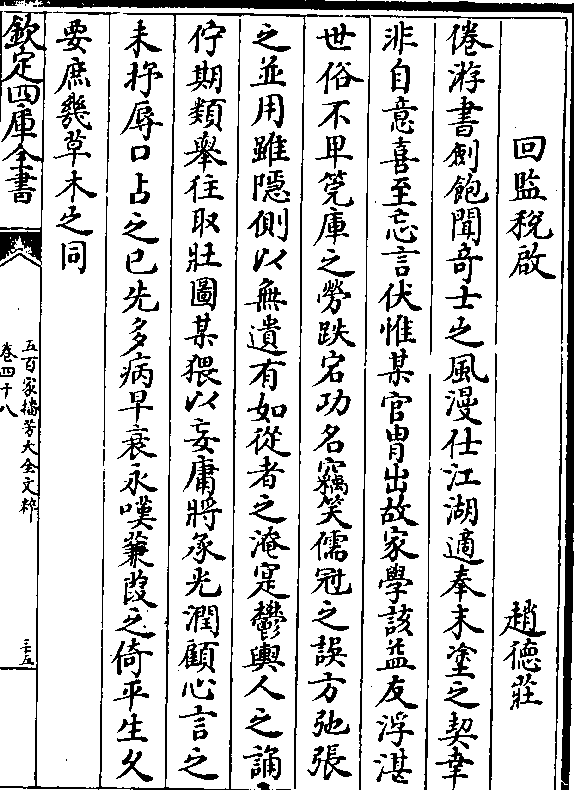 回監稅啟　趙德莊
倦游書劍飽聞奇士之風漫仕江湖適奉末塗之契幸
非自意喜至忘言伏惟某官胄出故家學該益友浮湛
世俗不卑筦庫之勞跌宕功名竊笑儒冠之誤方弛張
之並用雖隱側以無遺有如從者之淹寔鬱輿人之誦
佇期類舉往取壯圖某猥以妄庸將承光潤顧心言之
未抒辱口占之已先多病早衰永嘆蒹葭之倚平生久
要庶幾草木之同
欽定四庫全書
五百家播芳大全文粹
卷四十八
三十五